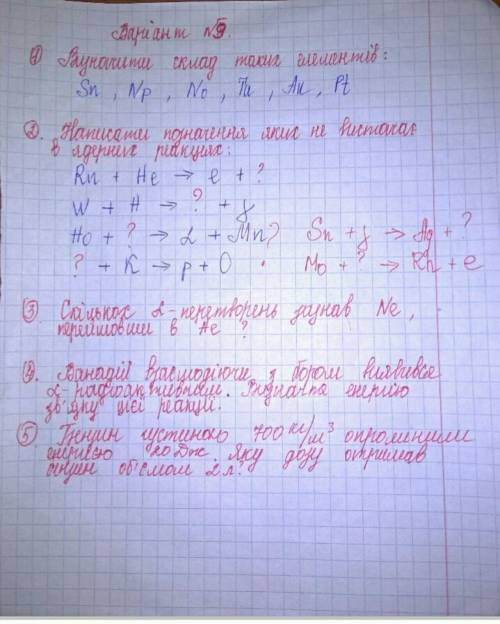 Варіант №9.
① Визначити склад таких елементів:
Sn, Np, No, Ta, Au, Pt
②. Написати позначення яких не вистачає
в ядерних реакціях:
Rn + He → e + ?
W + H → ? + γ
Ho + ? → α + Mn? Sn + γ → Ag + ?
? + K → p + O Mo + ? → Rh + e
③ Скількох α-перетворень зазнав Ne,
перейшовши в He ?
④. Ванадій взаємодіючи з бором виявився
α-радіоактивним. Визначте енергію
зв'язку цієї реакції.
⑤ Бензин густиною 700 кг/м³ опромінили
енергією 20 Дж. Яку дозу отримав
бензин об'ємом 2 л?